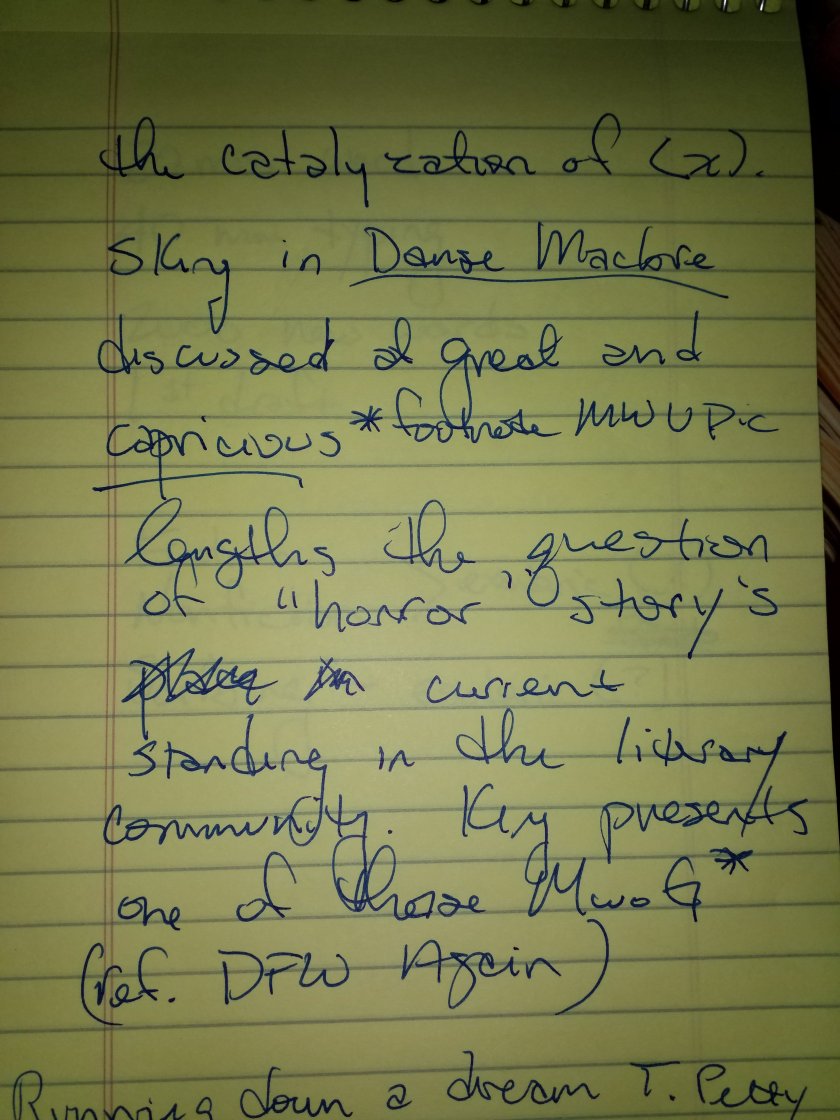 the catalyzation of (x).
SKing in Danse Macbre
discussed at great and
capricious * footnote MWUDic
lengths the question
of "horror" story's
current
standing in the literary
community. King presents
one of those MwoG*
(ref. DFW Again)
Running down a dream T. Petty